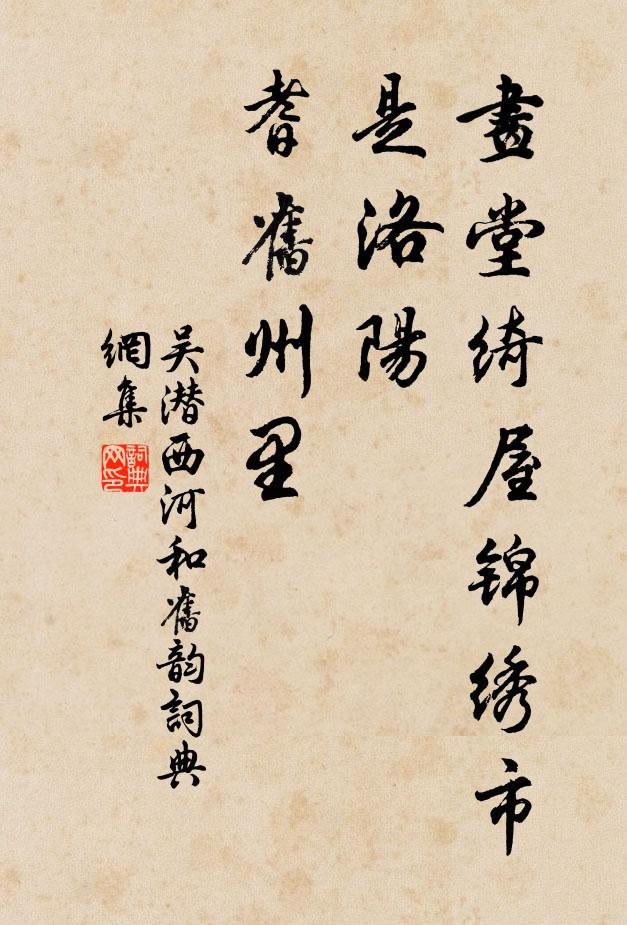 畫堂綺屋錦綉市
是洛陽
耆舊州里
吴潜西河和舊韵詞典
網集
詞典
网印